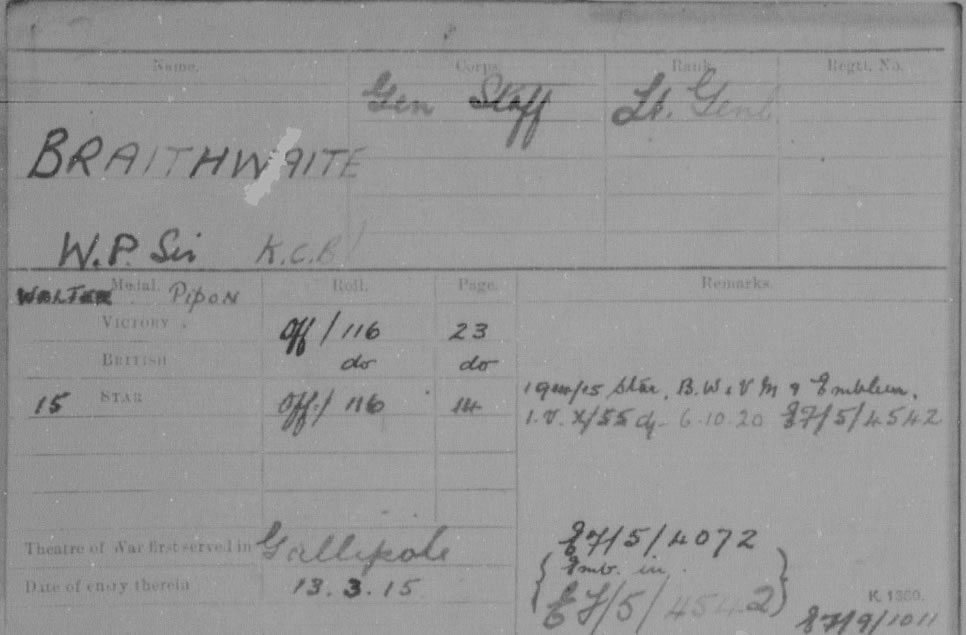 Name. Corps. Rank. Regtl. No.
Gen Staff Lt. Genl
BRAITHWAITE
W.P. Sir K.C.B
Medal. Roll. Page. Remarks.
WALTER PipoN
VICTORY Off/116 23
BRITISH do do
15 STAR Off/116 14 1914/15 Star, B.W. & V M & Emblem.
I.V. X/55 dy- 6.10.20 E7/5/4542
Theatre of War first served in Gallipoli E7/5/4072
Emb. in
Date of entry therein 13.3.15 E7/5/4542
K. 1380.
E7/9/1011